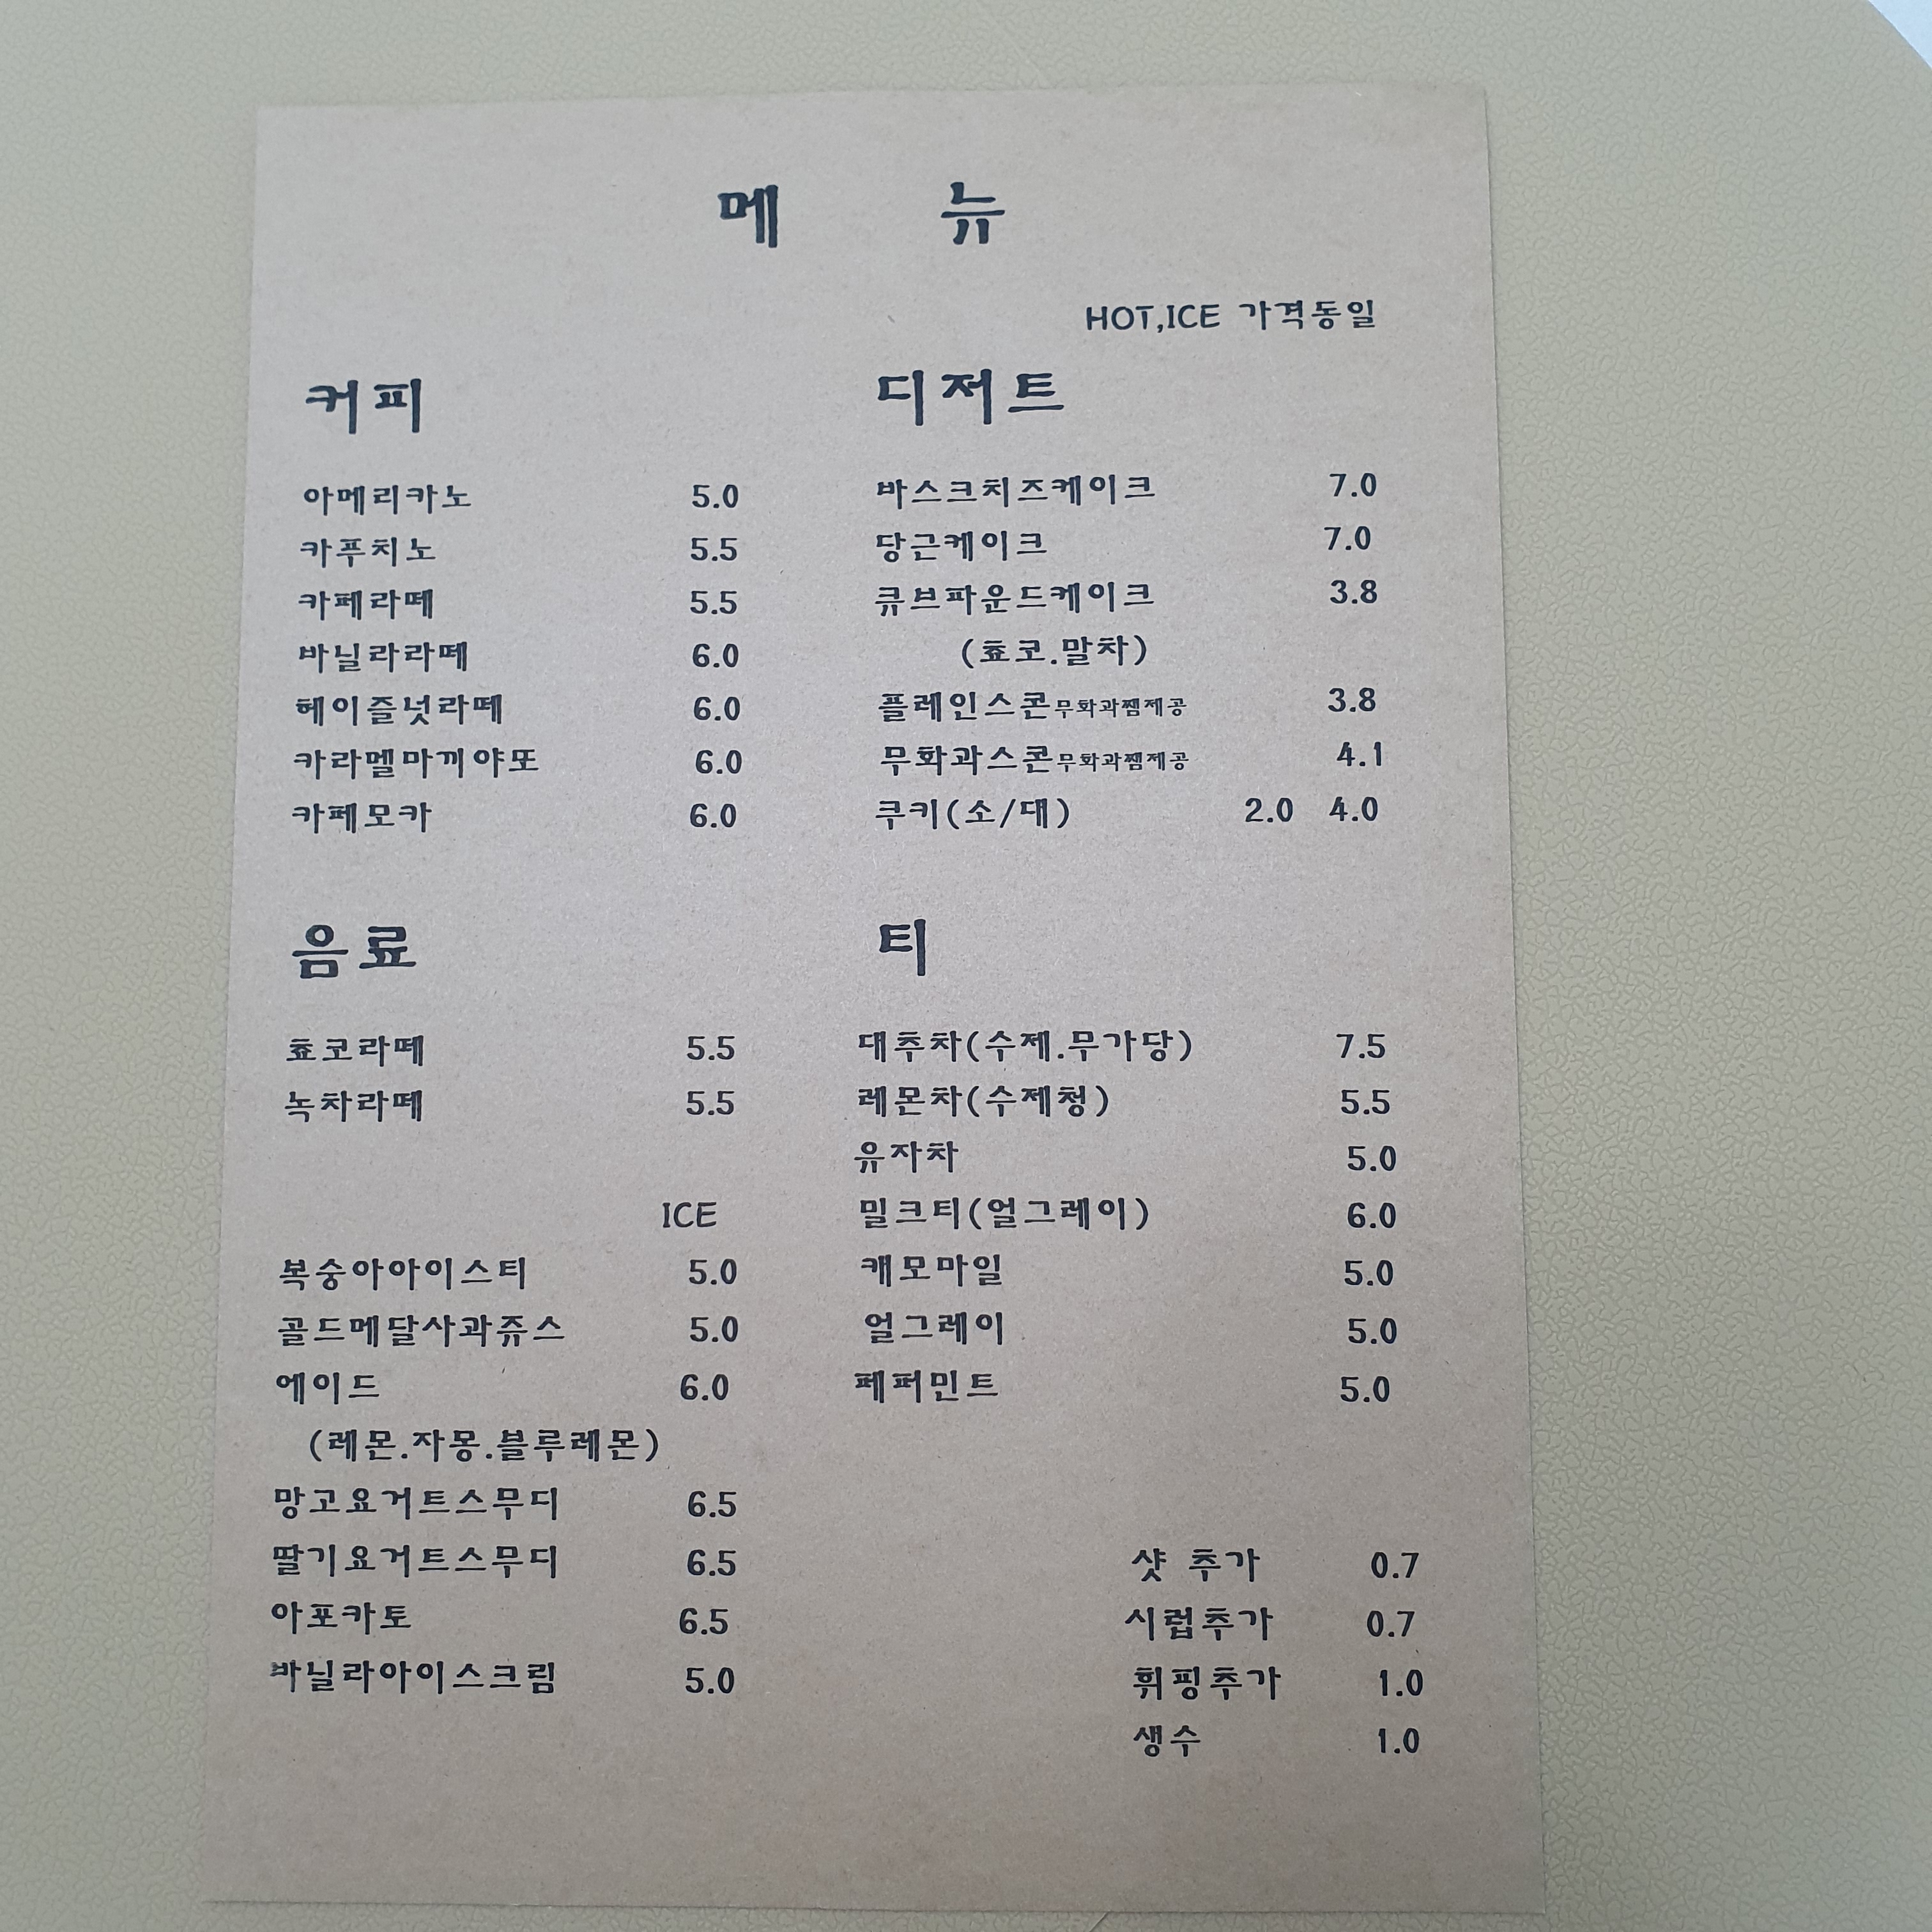 메 뉴
HOT,ICE 가격동일
커피
아메리카노 5.0
카푸치노 5.5
카페라떼 5.5
바닐라라떼 6.0
헤이즐넛라떼 6.0
카라멜마끼야또 6.0
카페모카 6.0
디저트
바스크치즈케이크 7.0
당근케이크 7.0
큐브파운드케이크 3.8
(쵸코.말차)
플레인스콘무화과쨈제공 3.8
무화과스콘무화과쨈제공 4.1
쿠키(소/대) 2.0 4.0
음료
쵸코라떼 5.5
녹차라떼 5.5
ICE
복숭아아이스티 5.0
골드메달사과쥬스 5.0
에이드 6.0
(레몬.자몽.블루레몬)
망고요거트스무디 6.5
딸기요거트스무디 6.5
아포카토 6.5
바닐라아이스크림 5.0
티
대추차(수제.무가당) 7.5
레몬차(수제청) 5.5
유자차 5.0
밀크티(얼그레이) 6.0
캐모마일 5.0
얼그레이 5.0
페퍼민트 5.0
샷 추가 0.7
시럽추가 0.7
휘핑추가 1.0
생수 1.0